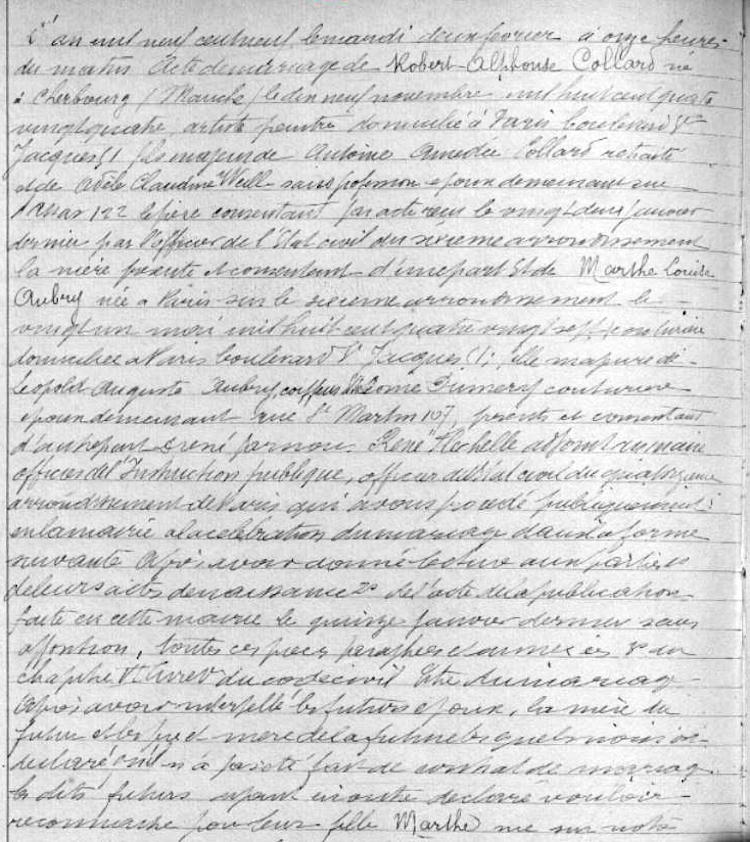 L'an mil neuf cent neuf, le mardi deux février à onze heures
du matin Acte de mariage de Robert Alphonse Collard né
à Cherbourg (Manche) le dix neuf novembre mil huit cent quatre
vingt quatre, artiste peintre domicilié à Paris boulevard St
Jacques 51 fils majeur de Antoine Amédée Collard retraité
et de Adèle Claudine Weill sans profession époux demeurant rue
122 le père consentant par acte reçu le vingt deux janvier
dernier par l'officier de l'Etat civil du sixième arrondissement
la mère présente et consentant d'une part Et de Marthe Louise
Aubry née à Paris sur le sixième arrondissement le
vingt un mars mil huit cent quatre vingt sept, couturière
domiciliée à Paris boulevard St Jacques 51, fille majeure de
Léopold Auguste Aubry, coiffeur Dumery couturière
époux demeurant rue St Martin 107, présents et consentant
d'autre part dressé par nous René Flechelle adjoint au maire
officier de l'Instruction publique, officier de l'Etat civil du quatorzième
arrondissement de Paris qui avons procédé publiquement
en la mairie à la célébration du mariage dans la forme
suivante Après avoir donné lecture aux parties
de leurs actes de naissance 2° de l'acte de la publication
faite en cette mairie le quinze janvier dernier sans
opposition, toutes ces pièces paraphées et annexées 3° du
chapitre VI livre V du code civil titre du mariage
Après avoir interpellé les futurs époux, la mère du
futur et les père et mère de la future lesquels nous ont
déclaré qu'il n'a pas été fait de contrat de mariage
les dits futurs ayant ensuite déclaré vouloir
reconnaître pour leur fille Marthe née sur notre